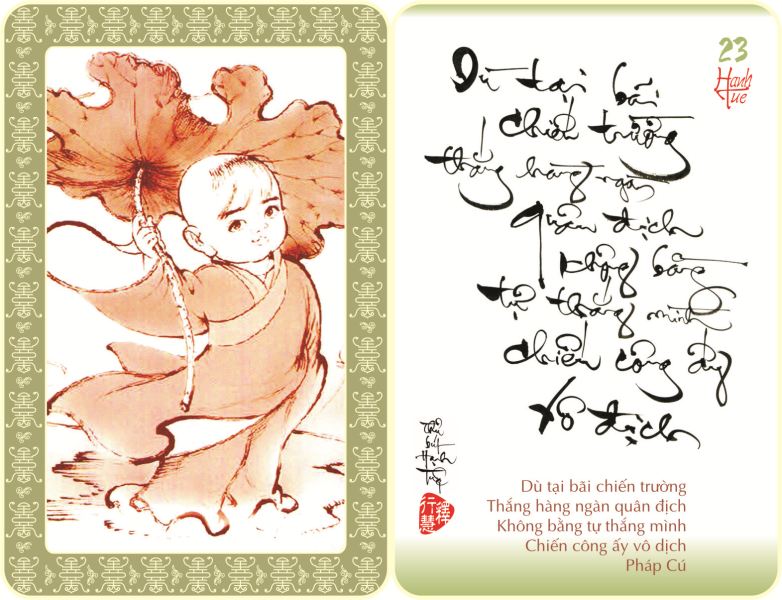 23
Hạnh
Tuệ
Dù tại bãi
chiến trường
thắng hàng ngàn
quân địch
không bằng
tự thắng mình
chiến công ấy
vô địch
Thủ
bút
Hạnh
Tuệ
釋
行慧
Dù tại bãi chiến trường
Thắng hàng ngàn quân địch
Không bằng tự thắng mình
Chiến công ấy vô dịch
Pháp Cú